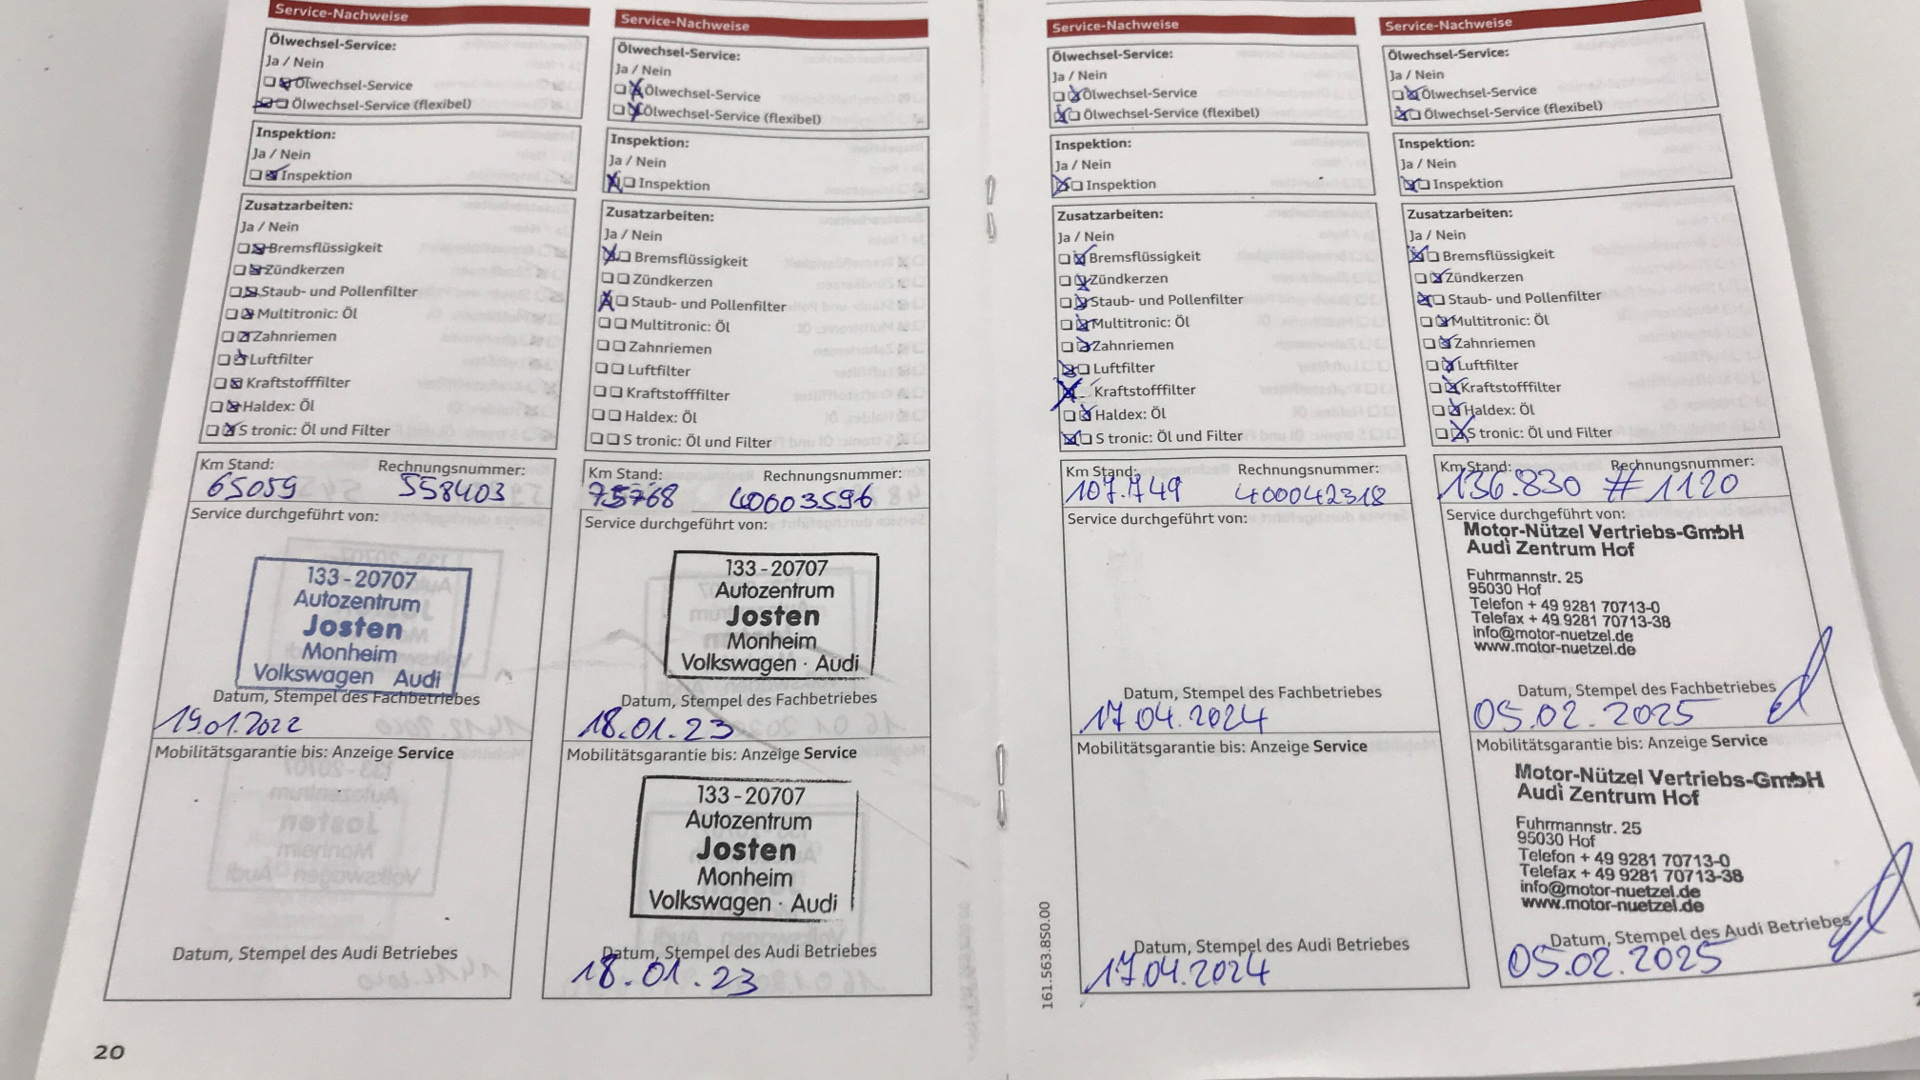 Service-Nachweise
Ölwechsel-Service:
Ja / Nein
Ölwechsel-Service
Ölwechsel-Service (flexibel)
Inspektion:
Ja / Nein
Inspektion
Zusatzarbeiten:
Ja / Nein
Bremsflüssigkeit
Zündkerzen
Staub- und Pollenfilter
Multitronic: Öl
Zahnriemen
Luftfilter
Kraftstofffilter
Haldex: Öl
S tronic: Öl und Filter
Km Stand: Rechnungsnummer:
65059 558403
Service durchgeführt von:
133-20707
Autozentrum
Josten
Monheim
Volkswagen Audi
Datum, Stempel des Fachbetriebes
19.01.2022
Mobilitätsgarantie bis: Anzeige Service
Datum, Stempel des Audi Betriebes
20
Service-Nachweise
Ölwechsel-Service:
Ja / Nein
Ölwechsel-Service
Ölwechsel-Service (flexibel)
Inspektion:
Ja / Nein
Inspektion
Zusatzarbeiten:
Ja / Nein
Bremsflüssigkeit
Zündkerzen
Staub- und Pollenfilter
Multitronic: Öl
Zahnriemen
Luftfilter
Kraftstofffilter
Haldex: Öl
S tronic: Öl und Filter
Km Stand: Rechnungsnummer:
75768 40003596
Service durchgeführt von:
133-20707
Autozentrum
Josten
Monheim
Volkswagen · Audi
Datum, Stempel des Fachbetriebes
18.01.23
Mobilitätsgarantie bis: Anzeige Service
133-20707
Autozentrum
Josten
Monheim
Volkswagen · Audi
Datum, Stempel des Audi Betriebes
18.01.23
Service-Nachweise
Ölwechsel-Service:
Ja / Nein
Ölwechsel-Service
Ölwechsel-Service (flexibel)
Inspektion:
Ja / Nein
Inspektion
Zusatzarbeiten:
Ja / Nein
Bremsflüssigkeit
Zündkerzen
Staub- und Pollenfilter
Multitronic: Öl
Zahnriemen
Luftfilter
Kraftstofffilter
Haldex: Öl
S tronic: Öl und Filter
Km Stand: Rechnungsnummer:
107.749 400042318
Service durchgeführt von:
Datum, Stempel des Fachbetriebes
17.04.2024
Mobilitätsgarantie bis: Anzeige Service
Datum, Stempel des Audi Betriebes
17.04.2024
161.563.8S0.00
Service-Nachweise
Ölwechsel-Service:
Ja / Nein
Ölwechsel-Service
Ölwechsel-Service (flexibel)
Inspektion:
Ja / Nein
Inspektion
Zusatzarbeiten:
Ja / Nein
Bremsflüssigkeit
Zündkerzen
Staub- und Pollenfilter
Multitronic: Öl
Zahnriemen
Luftfilter
Kraftstofffilter
Haldex: Öl
S tronic: Öl und Filter
Km Stand: Rechnungsnummer:
136.830 #1120
Service durchgeführt von:
Motor-Nützel Vertriebs-GmbH
Audi Zentrum Hof
Fuhrmannstr. 25
95030 Hof
Telefon + 49 9281 70713-0
Telefax + 49 9281 70713-38
info@motor-nuetzel.de
www.motor-nuetzel.de
Datum, Stempel des Fachbetriebes
05.02.2025
Mobilitätsgarantie bis: Anzeige Service
Motor-Nützel Vertriebs-GmbH
Audi Zentrum Hof
Fuhrmannstr. 25
95030 Hof
Telefon + 49 9281 70713-0
Telefax + 49 9281 70713-38
info@motor-nuetzel.de
www.motor-nuetzel.de
Datum, Stempel des Audi Betriebes
05.02.2025